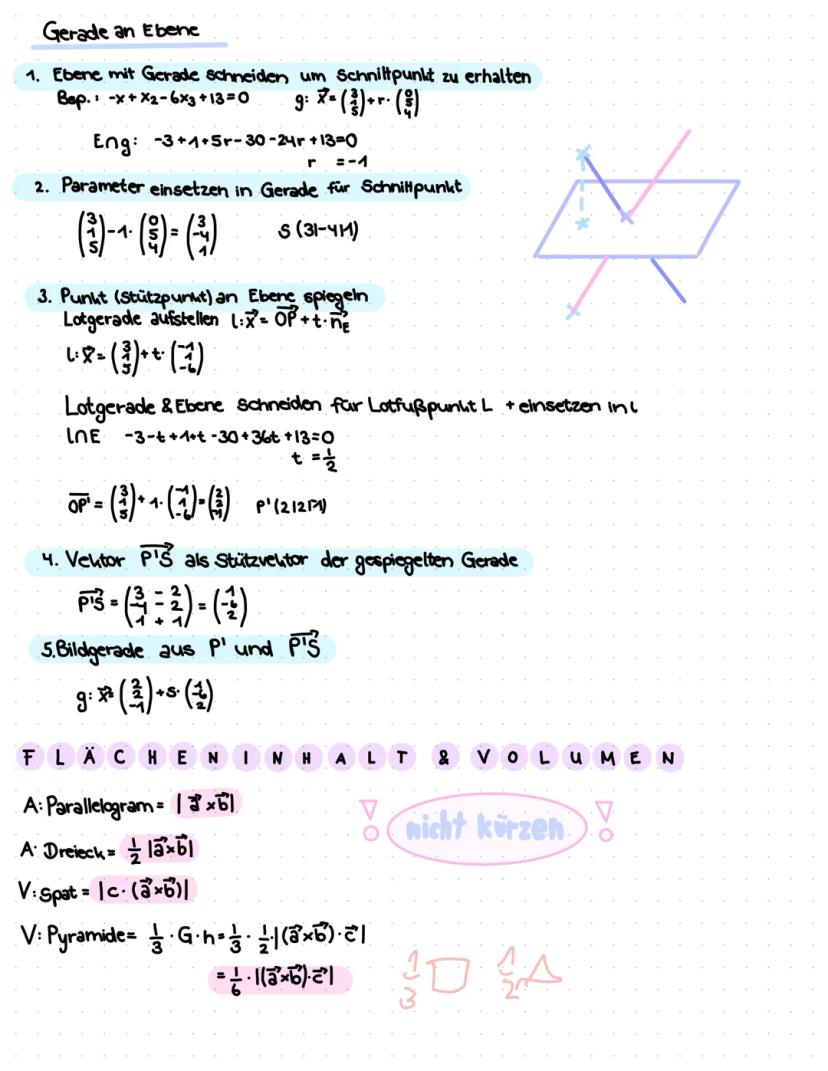 Gerade an Ebene
1. Ebene mit Gerade schneiden um Schnittpunkt zu erhalten
Bsp.: -x + x₂ - 6x₃ + 13 = 0    g: x⃗ = (3 1 5) + r · (0 5 4)
E∩g: -3 + 1 + 5r - 30 - 24r + 13 = 0
r = -1
2. Parameter einsetzen in Gerade für Schnittpunkt
(3 1 5) - 1 · (0 5 4) = (3 -4 1)    S (3|-4|1)
3. Punkt (Stützpunkt) an Ebene spiegeln
Lotgerade aufstellen l: x⃗ = OP⃗ + t · n⃗E
l: x⃗ = (3 1 5) + t · (-1 1 -6)
Lotgerade & Ebene schneiden für Lotfußpunkt L + einsetzen in l
l∩E -3 - t + 1 + t - 30 + 36t + 13 = 0
t = 1/2
OP' = (3 1 5) + 1 · (-1 1 -6) = (2 2 -1)    P' (2|2|-1)
4. Vektor P'S⃗ als Stützvektor der gespiegelten Gerade
P'S⃗ = (3 - 2 -4 - 2 1 + 1) = (1 -6 2)
5. Bildgerade aus P' und P'S⃗
g: x⃗ = (2 2 -1) + s · (1 -6 2)
FLÄCHENINHALT & VOLUMEN
A: Parallelogram = |a⃗ × b⃗|
! nicht kürzen !
A: Dreieck = 1/2 |a⃗ × b⃗|
V: Spat = |c · (a⃗ × b⃗)|
V: Pyramide = 1/3 · G · h = 1/3 · 1/2 |(a⃗ × b⃗) · c⃗|
= 1/6 · |(a⃗ × b⃗) · c⃗|
1/3 1/2